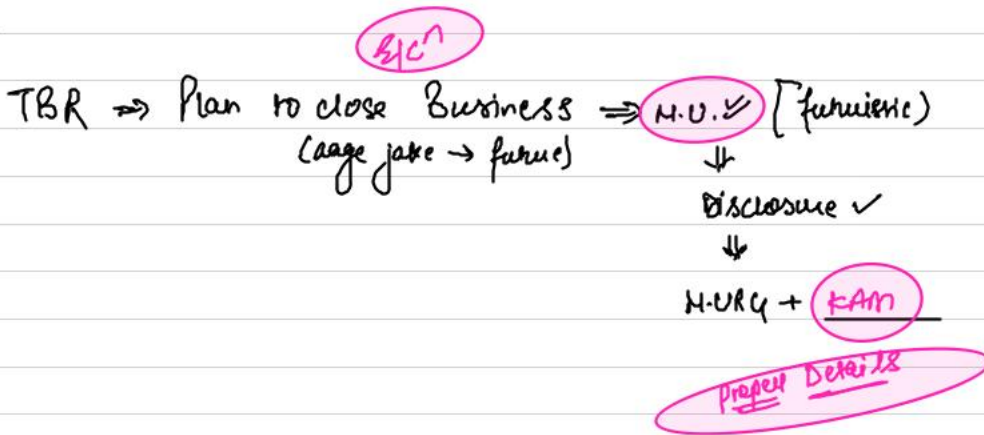 B/Cⁿ
TBR ⇒ Plan to close Business ⇒ M.U. ✓ [futuristic)
(aage jake → future)
⇓
Disclosure ✓
⇓
M.URG + KAM
Proper Details